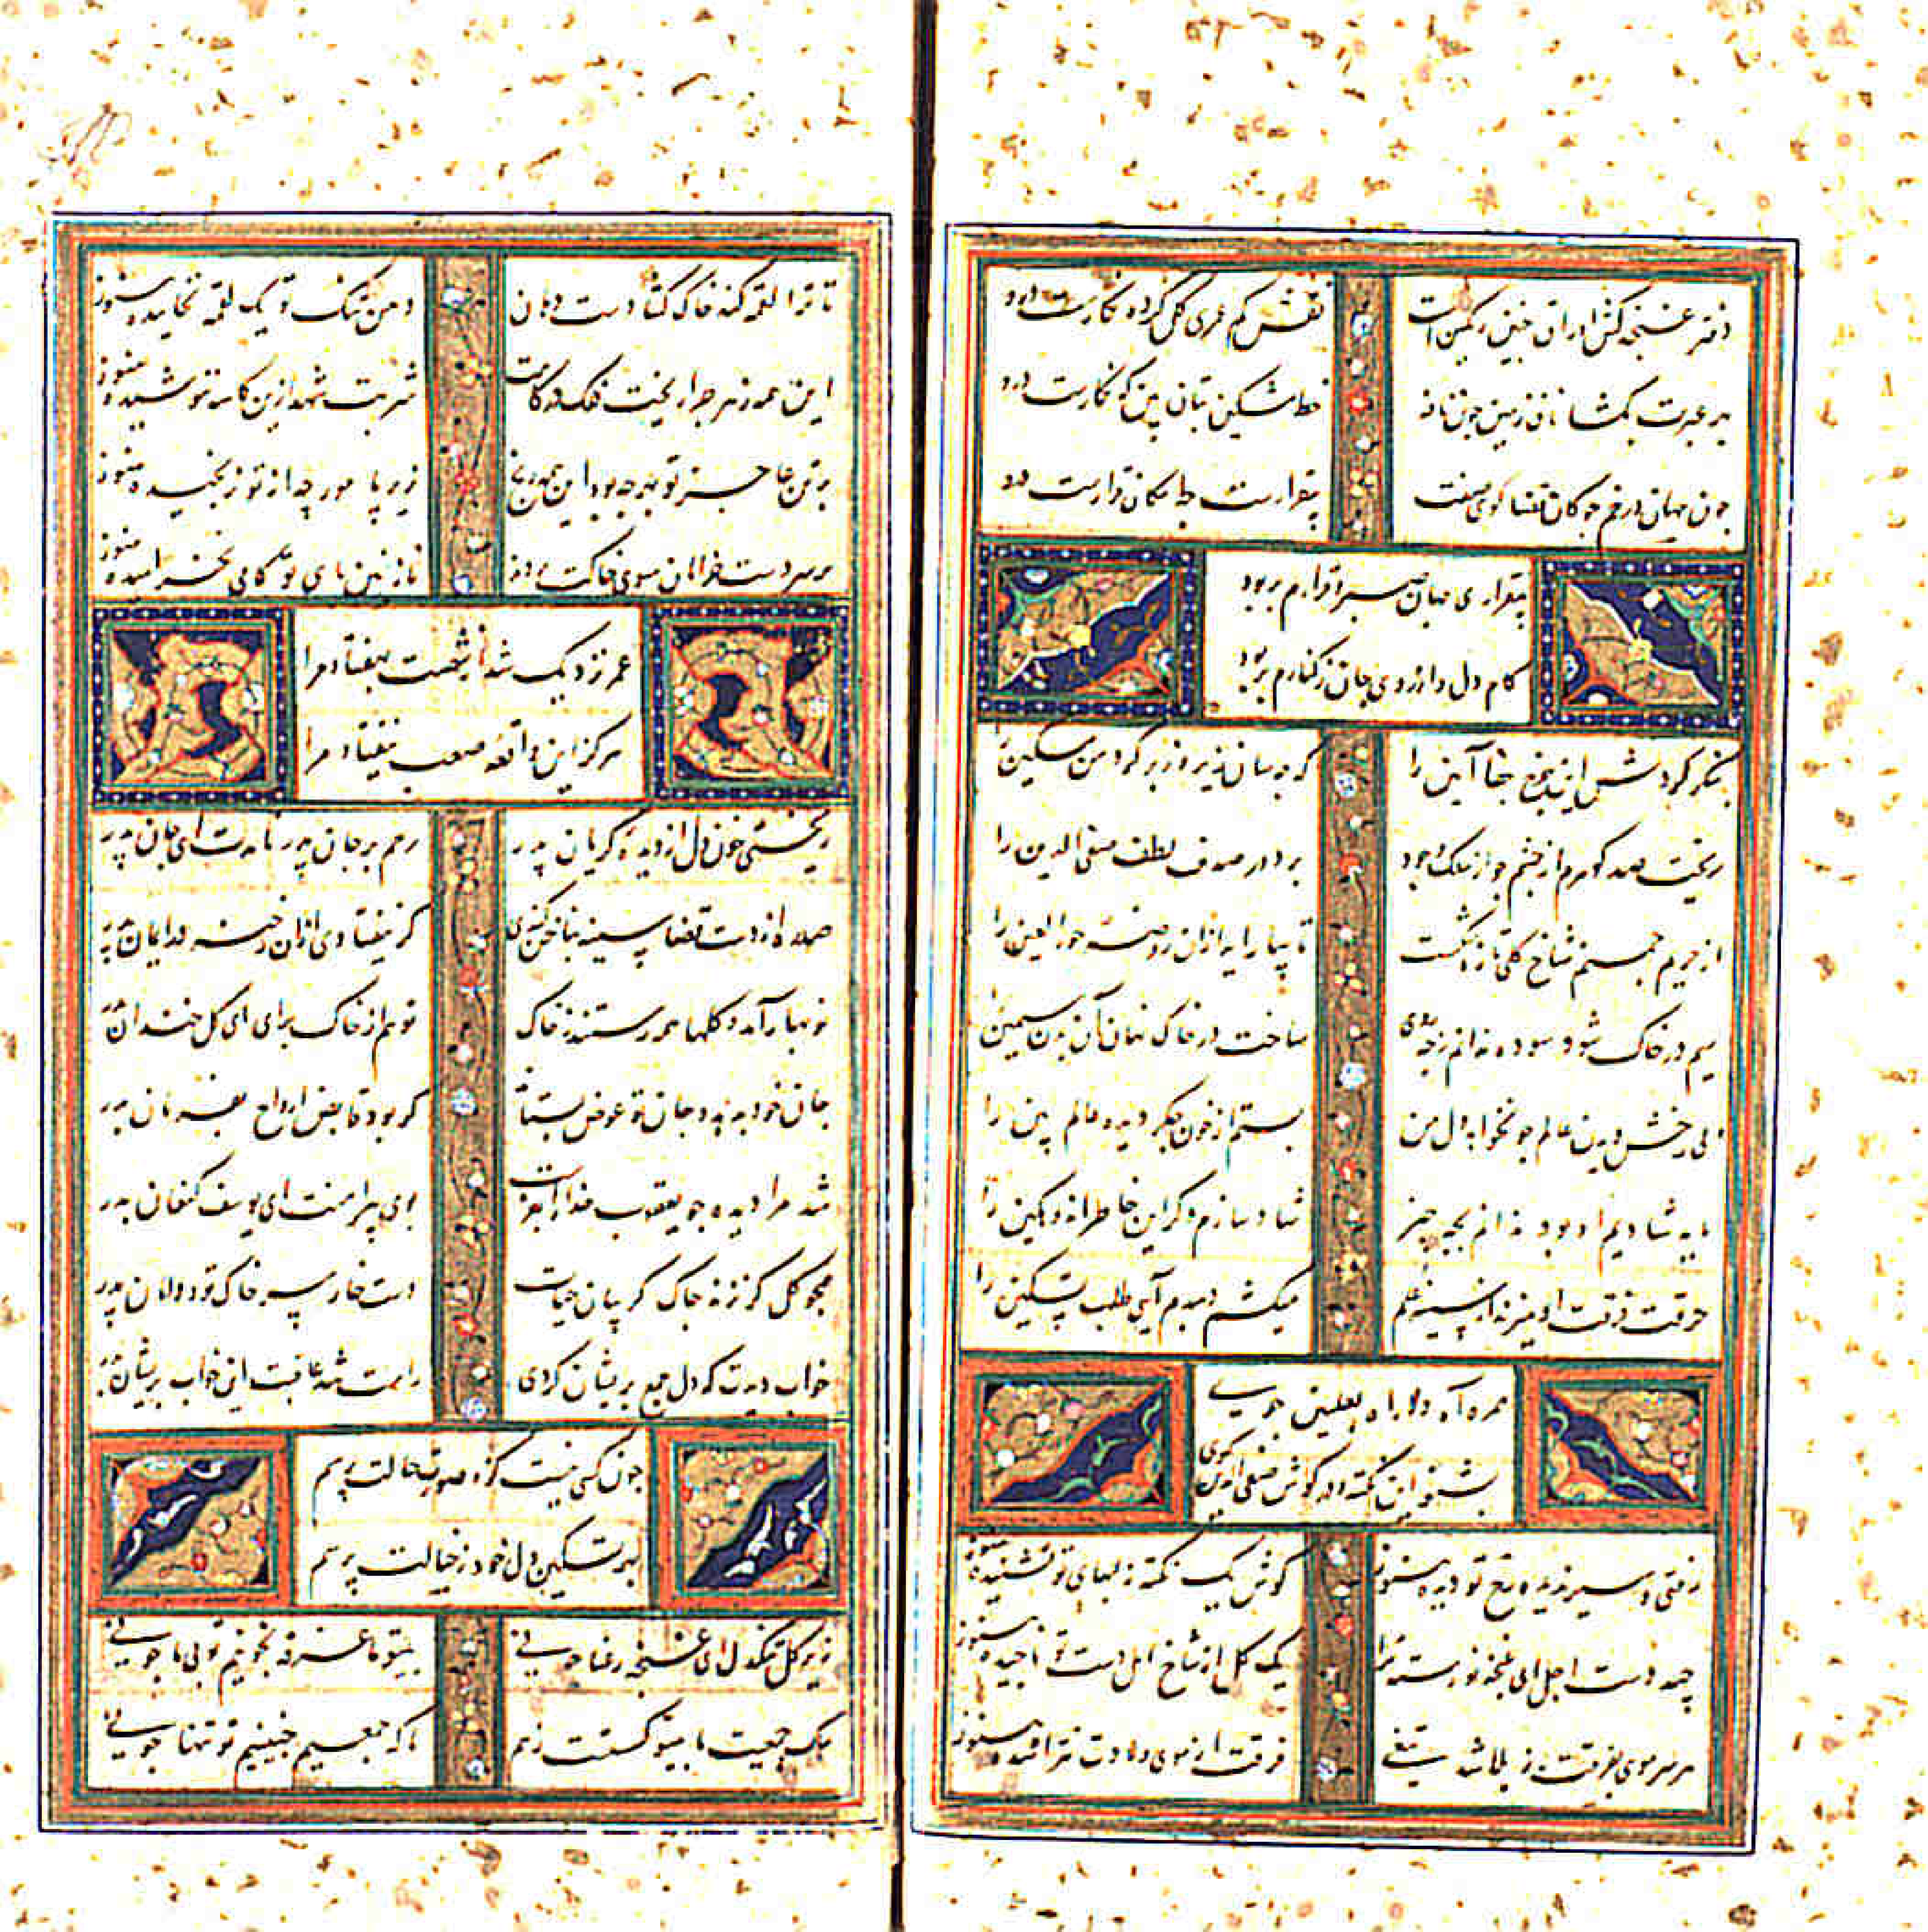 دفتر غنچه کش اوراق چنین رنگین است نقش کم عمری گل کرده نگارست درو
به عبرت بگشا ناف زمین چون نافه خط مشکین بتان بین که نگارست درو
چون جهان در خم چوکان قضا کوی صفت بیقرارست چه امکان قرارست درو
بیقراری جهان صبر و قرارم بربود
کام دل و ارزوی جان ز کنارم بربود
بنکر کردش این چرخ جفا آیین را که چه سان زیر و زبر کرد من مسکین را
ریخت صد کوهرم از چشم چو از سلک وجود برد در صدف لطف صفی الدین را
از حریم چمنم شاخ کلی تازه شکست تا بیاراید ازان روضه حور العین را
سیم در خاک شود سوده ندانم ز چه روی ساخت در خاک نهان آن بدن سیمین را
بی رخش دیدن عالم چو نخواهد دل من بستم از خون جکر دیده عالم بین را
مایه شادیم او بود ندانم بچه چیز شاد سازم دکر این خاطر اندوکین را
حرقت فرقت او میزند از سینه علم میکشم دمبدم آبی طلب تسکین را
همره آه دلا راه بعلیین جوی
بشنو این نکته و در کوش صفی الدین کوی
رفتی و سیر ندیده رخ تو دیده هنوز کوش یک نکته ز لبهای تو نشنیده هنوز
چید دست اجل ای غنچه نورسته ترا یک کل از شاخ امل دست تو ناچیده هنوز
هر سر موی بفرقت ز بلا شد تیغی فرقت از موی ولادت نتراشیده هنوز
تا ترا لقمه کند خاک کشادست دهان دهن تنک تو یک لقمه نخاییده هنوز
این همه زهر چرا ریخت فلک در کامت شربت شهد ازین کاسه ننوشیده هنوز
بر تن عاجز تو بهر چه بود این همه رنج زیر پا مورچه از تو نرنجیده هنوز
بر سر دست خرامان سوی خاکت بردند نازنین پای تو کامی نخرامیده هنوز
عمر نزدیک شد از شصت بهفتاد مرا
هرکز این واقعه صعب نیفتاد مرا
ریختی خون دل از دیده کریان پدر رحم بر جان پدر نامدت ای جان پدر
صد ره از دست قضا سینه بناخن کندی کر نیفتادی ازان رخنه در ایمان پدر
نوبهار آمد و کلها همه رستند ز خاک تو هم از خاک برآی ای کل خندان پدر
جان خود بدهد و جان تو عوض بستاند کر بود قابض ارواح بفرمان پدر
شد مرا دیده چو یعقوب خدا را بفرست بوی پیراهنت ای یوسف کنعان پدر
همچو کل کر نزند چاک کریبان حیات دست خار سر خاک تو و دامان پدر
خواب دیدت که دل جمع پریشان کردی راست شد عاقبت این خواب پریشان پدر
چون کسی نیست که از صورت حالت پرسم
بهر تسکین دل خود ز خیالت پرسم
زیر کل تنک دل ای غنچه رعنا چونی بیتو ما غرقه بخونیم تو بی ما چونی
سلک جمعیت ما بیتو کسستست ز هم ما که جمعیم چنینیم تو تنها چونی